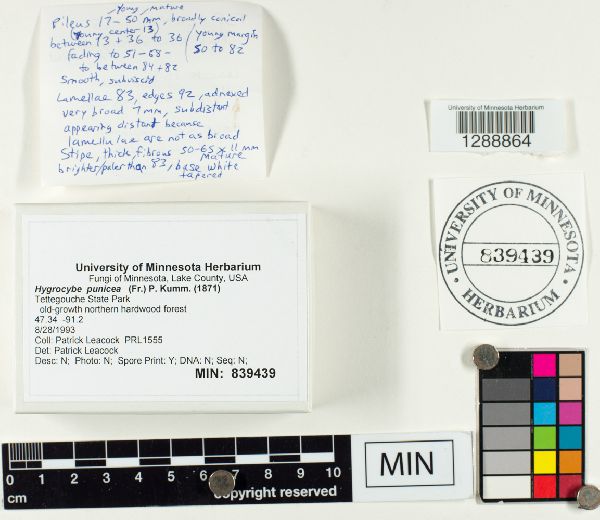 young, mature
Pileus 17-50 mm, broadly conical
(young center 13)
between 13 + 36 to 36 / young margin
fading to 51-68- 50 to 82
to between 84 + 82
Smooth, subviscid
Lamellae 83, edges 92, adnexed
very broad 7mm, subdistant
appearing distant because
lamellulae are not as broad
Stipe, thick, fibrous 50-65 x 11 mm
mature
brighter/paler than 83, base white
tapered
University of Minnesota Herbarium
1288864
UNIVERSITY OF MINNESOTA
839439
HERBARIUM
University of Minnesota Herbarium
Fungi of Minnesota, Lake County, USA
Hygrocybe punicea (Fr.) P. Kumm. (1871)
Tettegouche State Park
old-growth northern hardwood forest
47.34 -91.2
8/28/1993
Coll: Patrick Leacock PRL1555
Det: Patrick Leacock
Desc: N; Photo: N; Spore Print: Y; DNA: N; Seq: N;
MIN: 839439
0 1 2 3 4 5 6 7 8 9 10
cm
copyright reserved
MIN